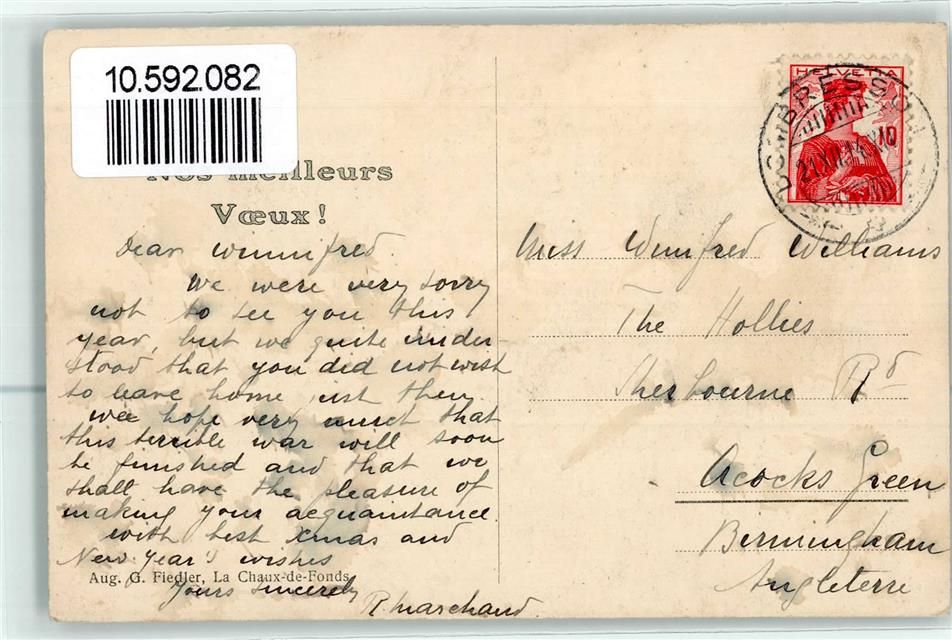 10.592.082
Nos meilleurs
Vœux!
HELVETIA
DOMBRESSON
21.XII.14.X10
Dear Winnifred.
We were very sorry
not to see you this
year, but we quite under
stood that you did not wish
to leave home just then.
we hope very much that
this terrible war will soon
be finished and that we
shall have the pleasure of
making your acquaintance.
with best Xmas and
New Year's wishes
Aug. G. Fiedler, La Chaux-de-Fonds
Yours sincerely
R Marchand
Miss Winifred Williams
The Hollies
Sherbourne Rd
Acocks Green
Birmingham
Angleterre